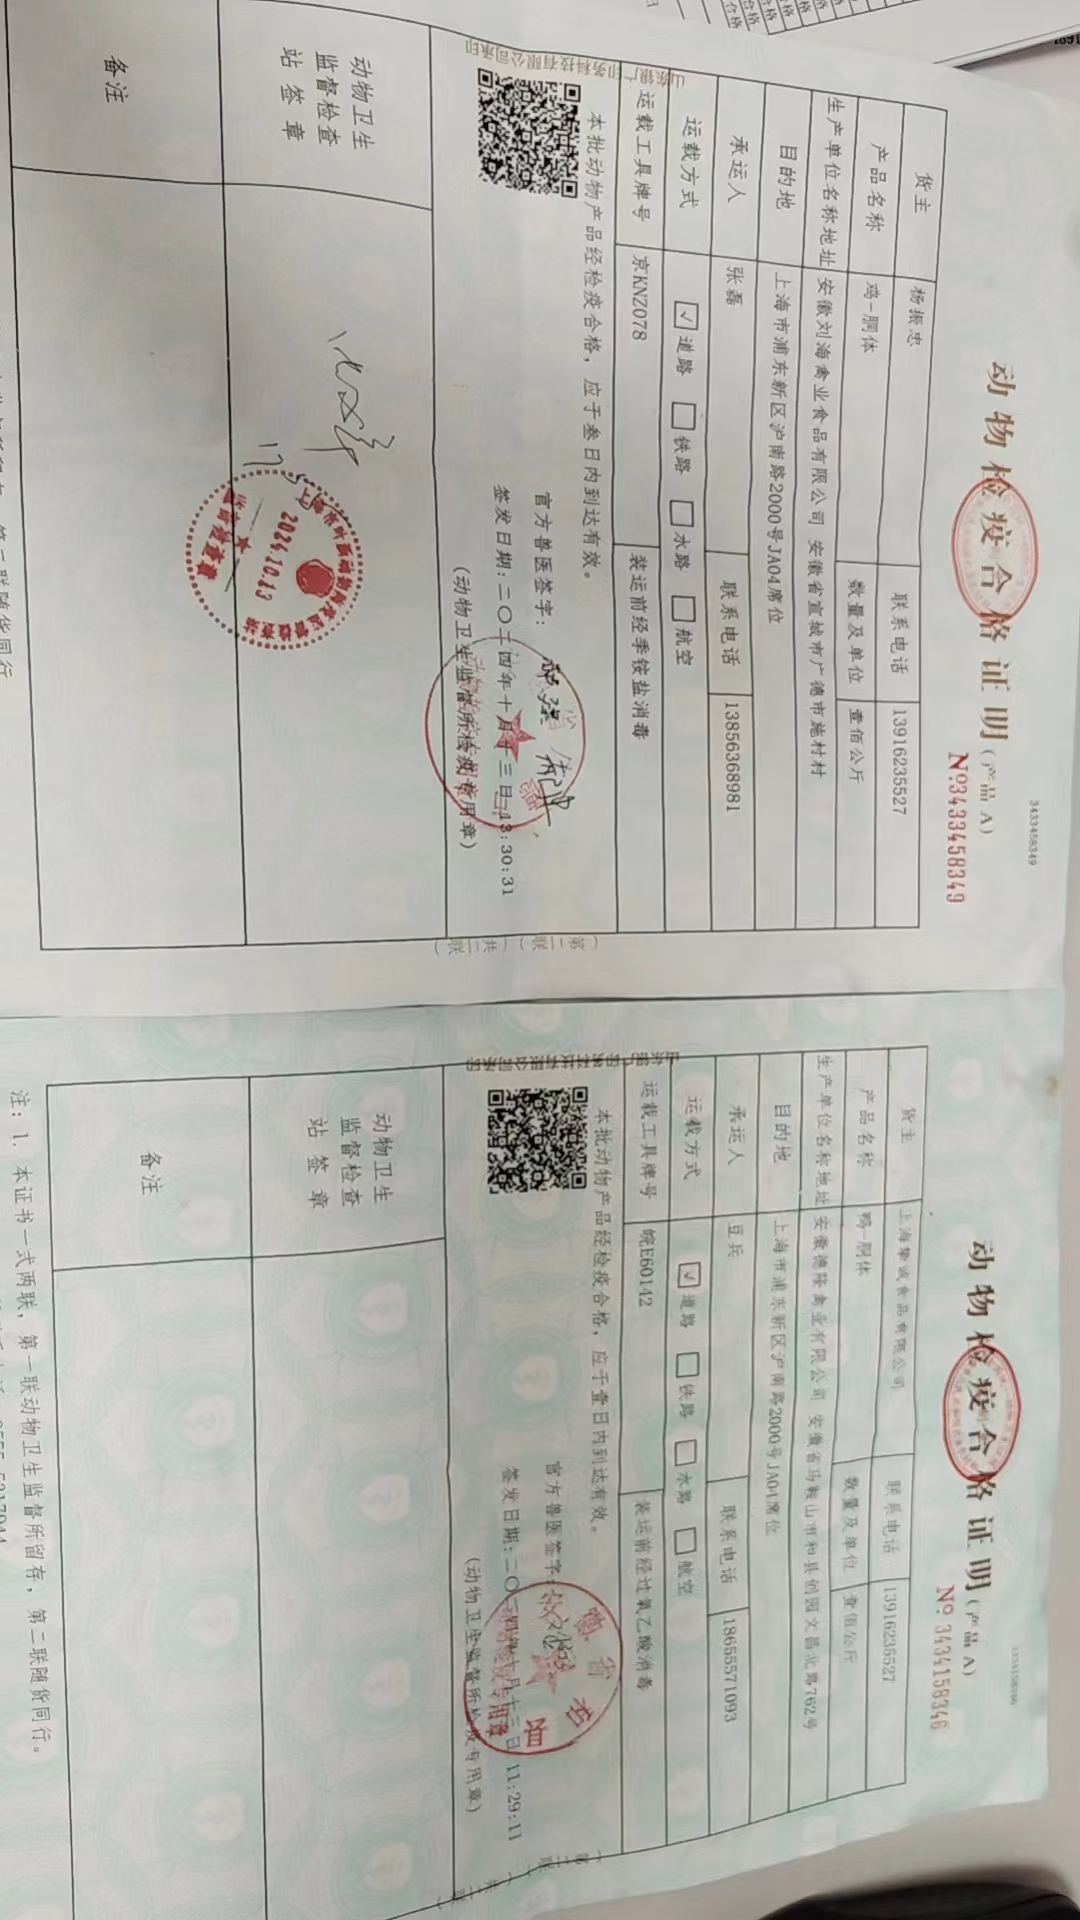 动物检疫合格证明(产品 A)
3433458349
№3433458349
货主 杨振忠 联系电话 13916235527
产品名称 鸡-胴体 数量及单位 壹佰公斤
生产单位名称地址 安徽刘海禽业食品有限公司 安徽省宣城市广德市施村村
目的地 上海市浦东新区沪南路2000号JA04席位
承运人 张磊 联系电话 13856368981
运载方式 ☑道路 □铁路 □水路 □航空
运载工具牌号 京KNZ078 装运前经季铵盐消毒
本批动物产品经检疫合格，应于叁日内到达有效。
官方兽医签字：
签发日期:二〇二四年十月十三日 13:30:31
(动物卫生监督所检疫专用章)
动物卫生
监督检查
站 签 章
2024.10.13
备注
山东银广印务科技有限公司承印
(第二联)(共二联)
第二联随货同行
动物检疫合格证明(产品 A)
№ 3434158346
货主 联系电话 13916235527
产品名称 鸭-胴体 数量及单位 壹佰公斤
生产单位名称地址 安徽德隆禽业有限公司 安徽省马鞍山市和县 文昌北路762号
目的地 上海市浦东新区沪南路2000号JA04席位
承运人 豆兵 联系电话 18655571093
运载方式 ☑道路 □铁路 □水路 □航空
运载工具牌号 皖E60142 装运前经过氧乙酸消毒
本批动物产品经检疫合格，应于壹日内到达有效。
官方兽医签字:
签发日期:二〇二四年十月十三日 11:29:11
(动物卫生监督所检疫专用章)
动物卫生
监督检查
站 签 章
备注
注：1. 本证书一式两联，第一联动物卫生监督所留存，第二联随货同行。